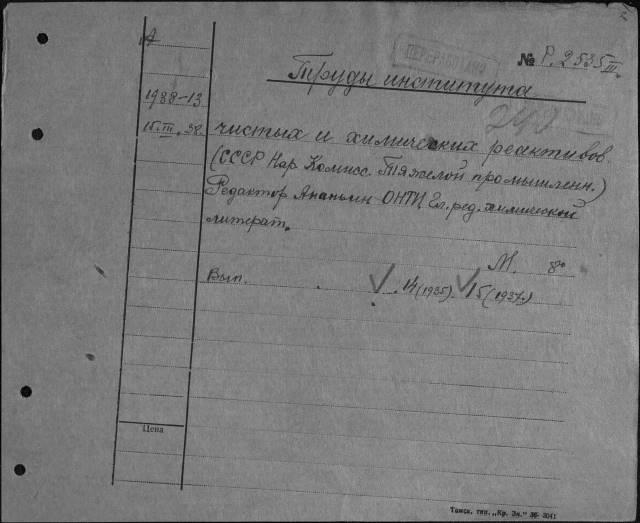 А
ПЕРЕРАБОТАНО
№ Р. 2535 III.
Труды института
1988-13
240
15. III. 38.
чистых и химических реактивов.
(СССР Нар Комисс. Тяжелой промышленн.)
Редактор Ананьин ОНТИ Гл. ред. химической
литерат.
М. 8°
Вып. 14 (1935). 15 (1937.)
Цена
Томск. тип. „Кр. Зн." 36- 3041